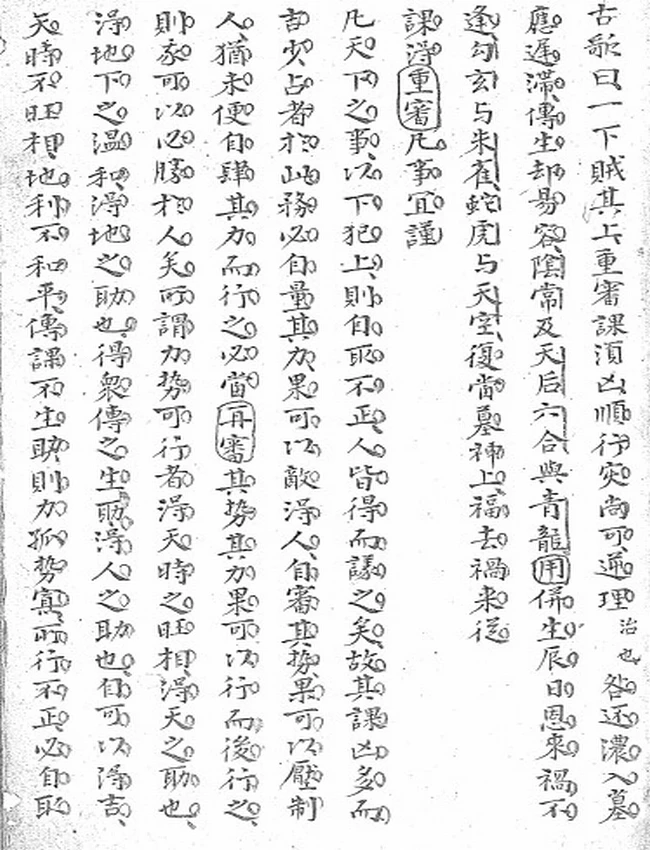 古歌曰一下賊其上重審課湏凶順行灾尚可逆理治也咎还濃入墓
應遲滯傳生却易容陰常及天后六合與青龍用併生辰日恩來禍不
逢勾玄与朱雀蛇虎与天空復當墓神上福去禍来从
課淂重審凡事宜謹
凡天下之事以下犯上則自取不正人皆得而議之矣故其課凶多而
吉少占者於此務必自量其力果可以敵淂人自審其势果可以壓制
人猶未便自肆其力而行之必當再審其势其力果可以行而後行之
則亥可以必勝於人矣可謂力势可行者淂天時之旺相淂天之助也
淂地下之温和淂地之助也得衆傳之生助淂人之助也自可以淂吉
天時不旺相地利不和平傳課不生助則力孤势寡可行不正必自取